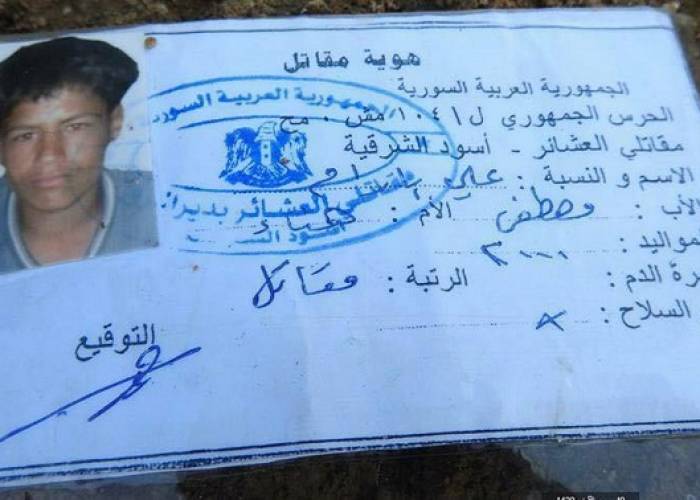 هوية مقاتل
الجمهورية العربية السورية
الحرس الجمهوري ل١٠٤/ مش . مح
مقاتلي العشائر - أسود الشرقية
الاسم و النسبة : علي
الأب : مصطفى الأم :
مواليد : ٢٠٠٠
رة الدم : الرتبة : مقاتل
السلاح :
التوقيع
الجمهورية العربية السورية
مقاتلي العشائر بدير
أسود